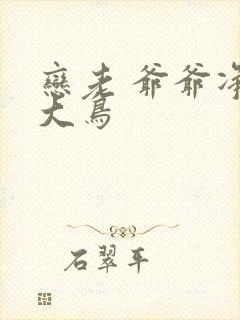 戀老 爺爺淨
大鳥
石翠平